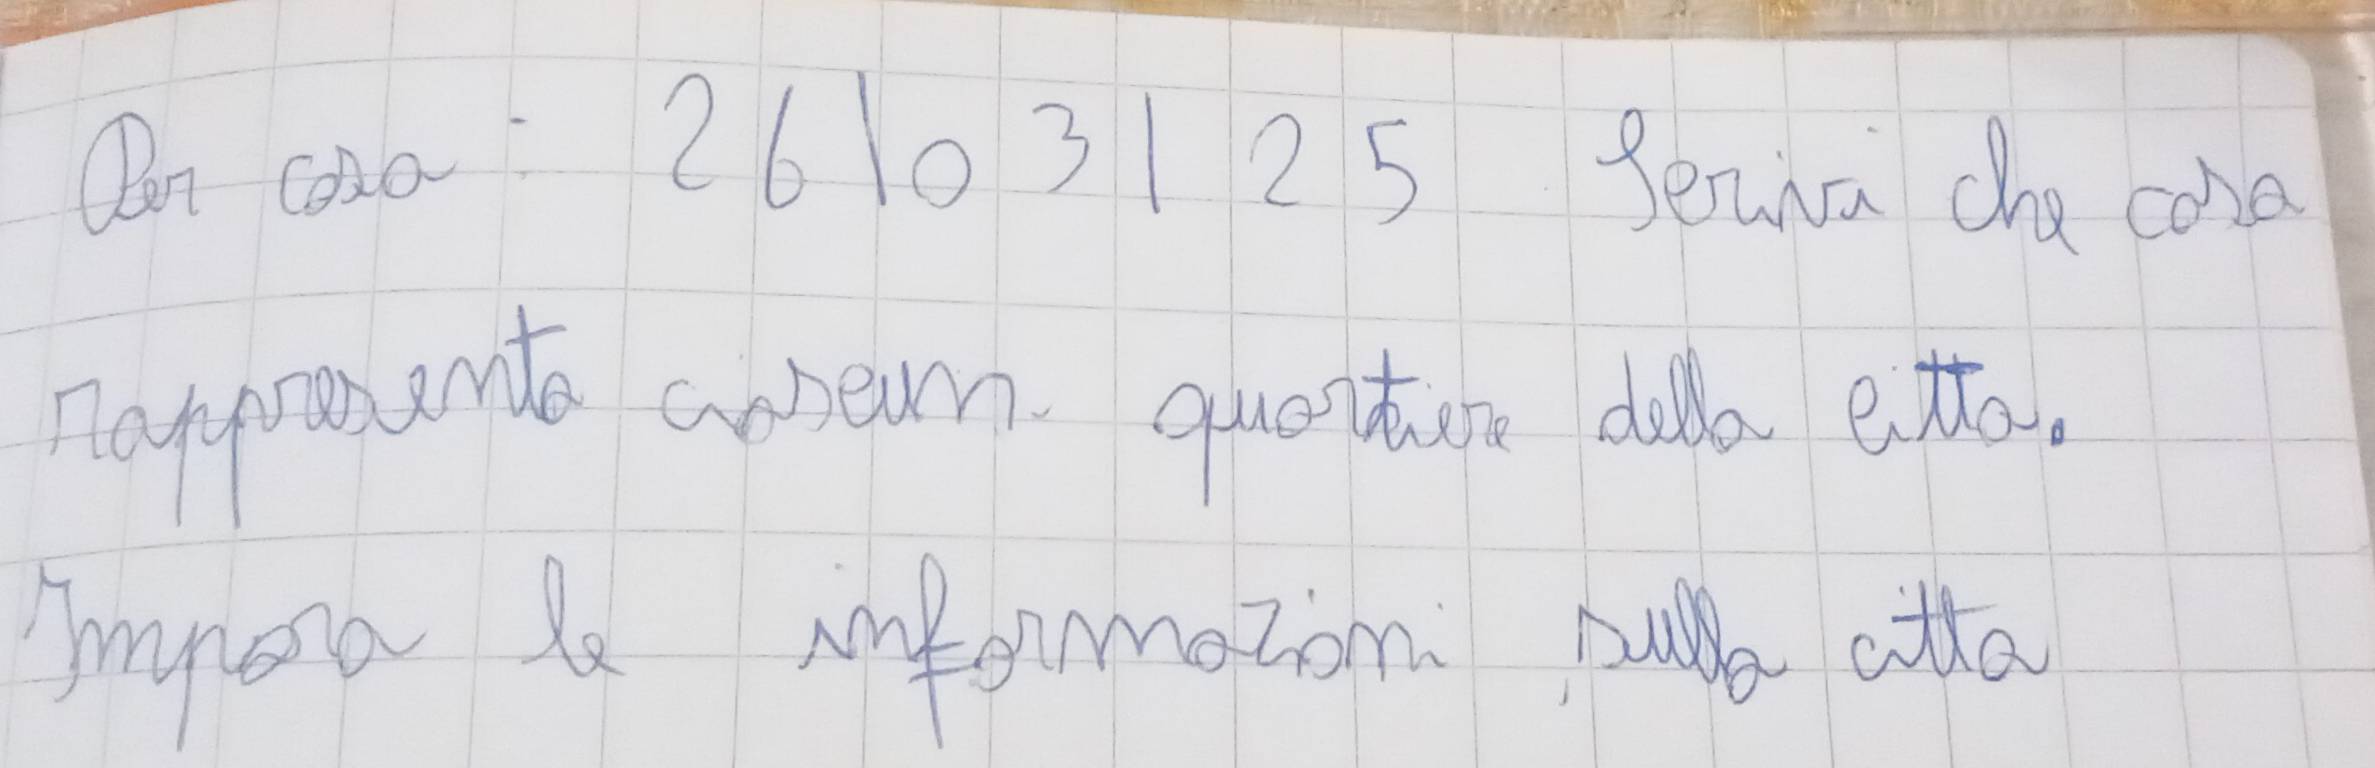 Per casa : 26\03|25 Scrivi che cosa
rappresenta ciascun quartiere della citta.
Impara le informazioni sulla citta